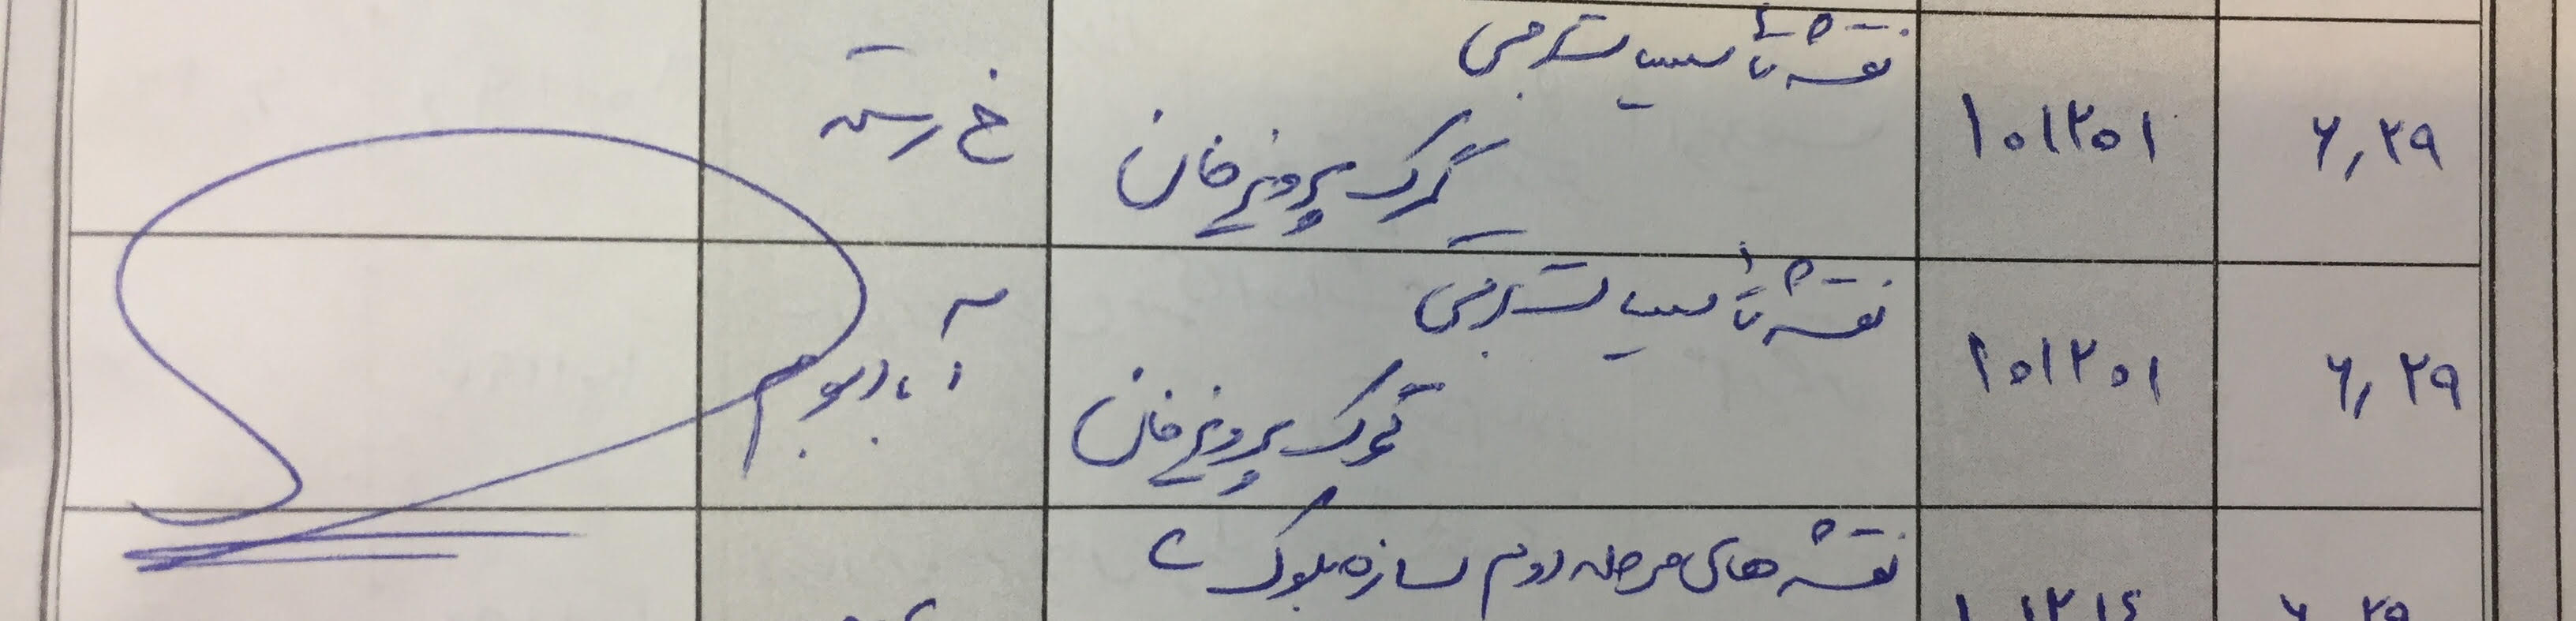 ۶,۲۹
۱۰۱۲۰۱
نقشه تأسیسات برقی
گمرک پرویزخان
خ رسته
۶,۲۹
۱۰۱۲۰۱
نقشه تأسیسات برقی
گمرک پرویزخان
آبادبوم
۶,۲۹
۱۰۱۲۱۴
نقشه های مرحله دوم سازه بلوک C